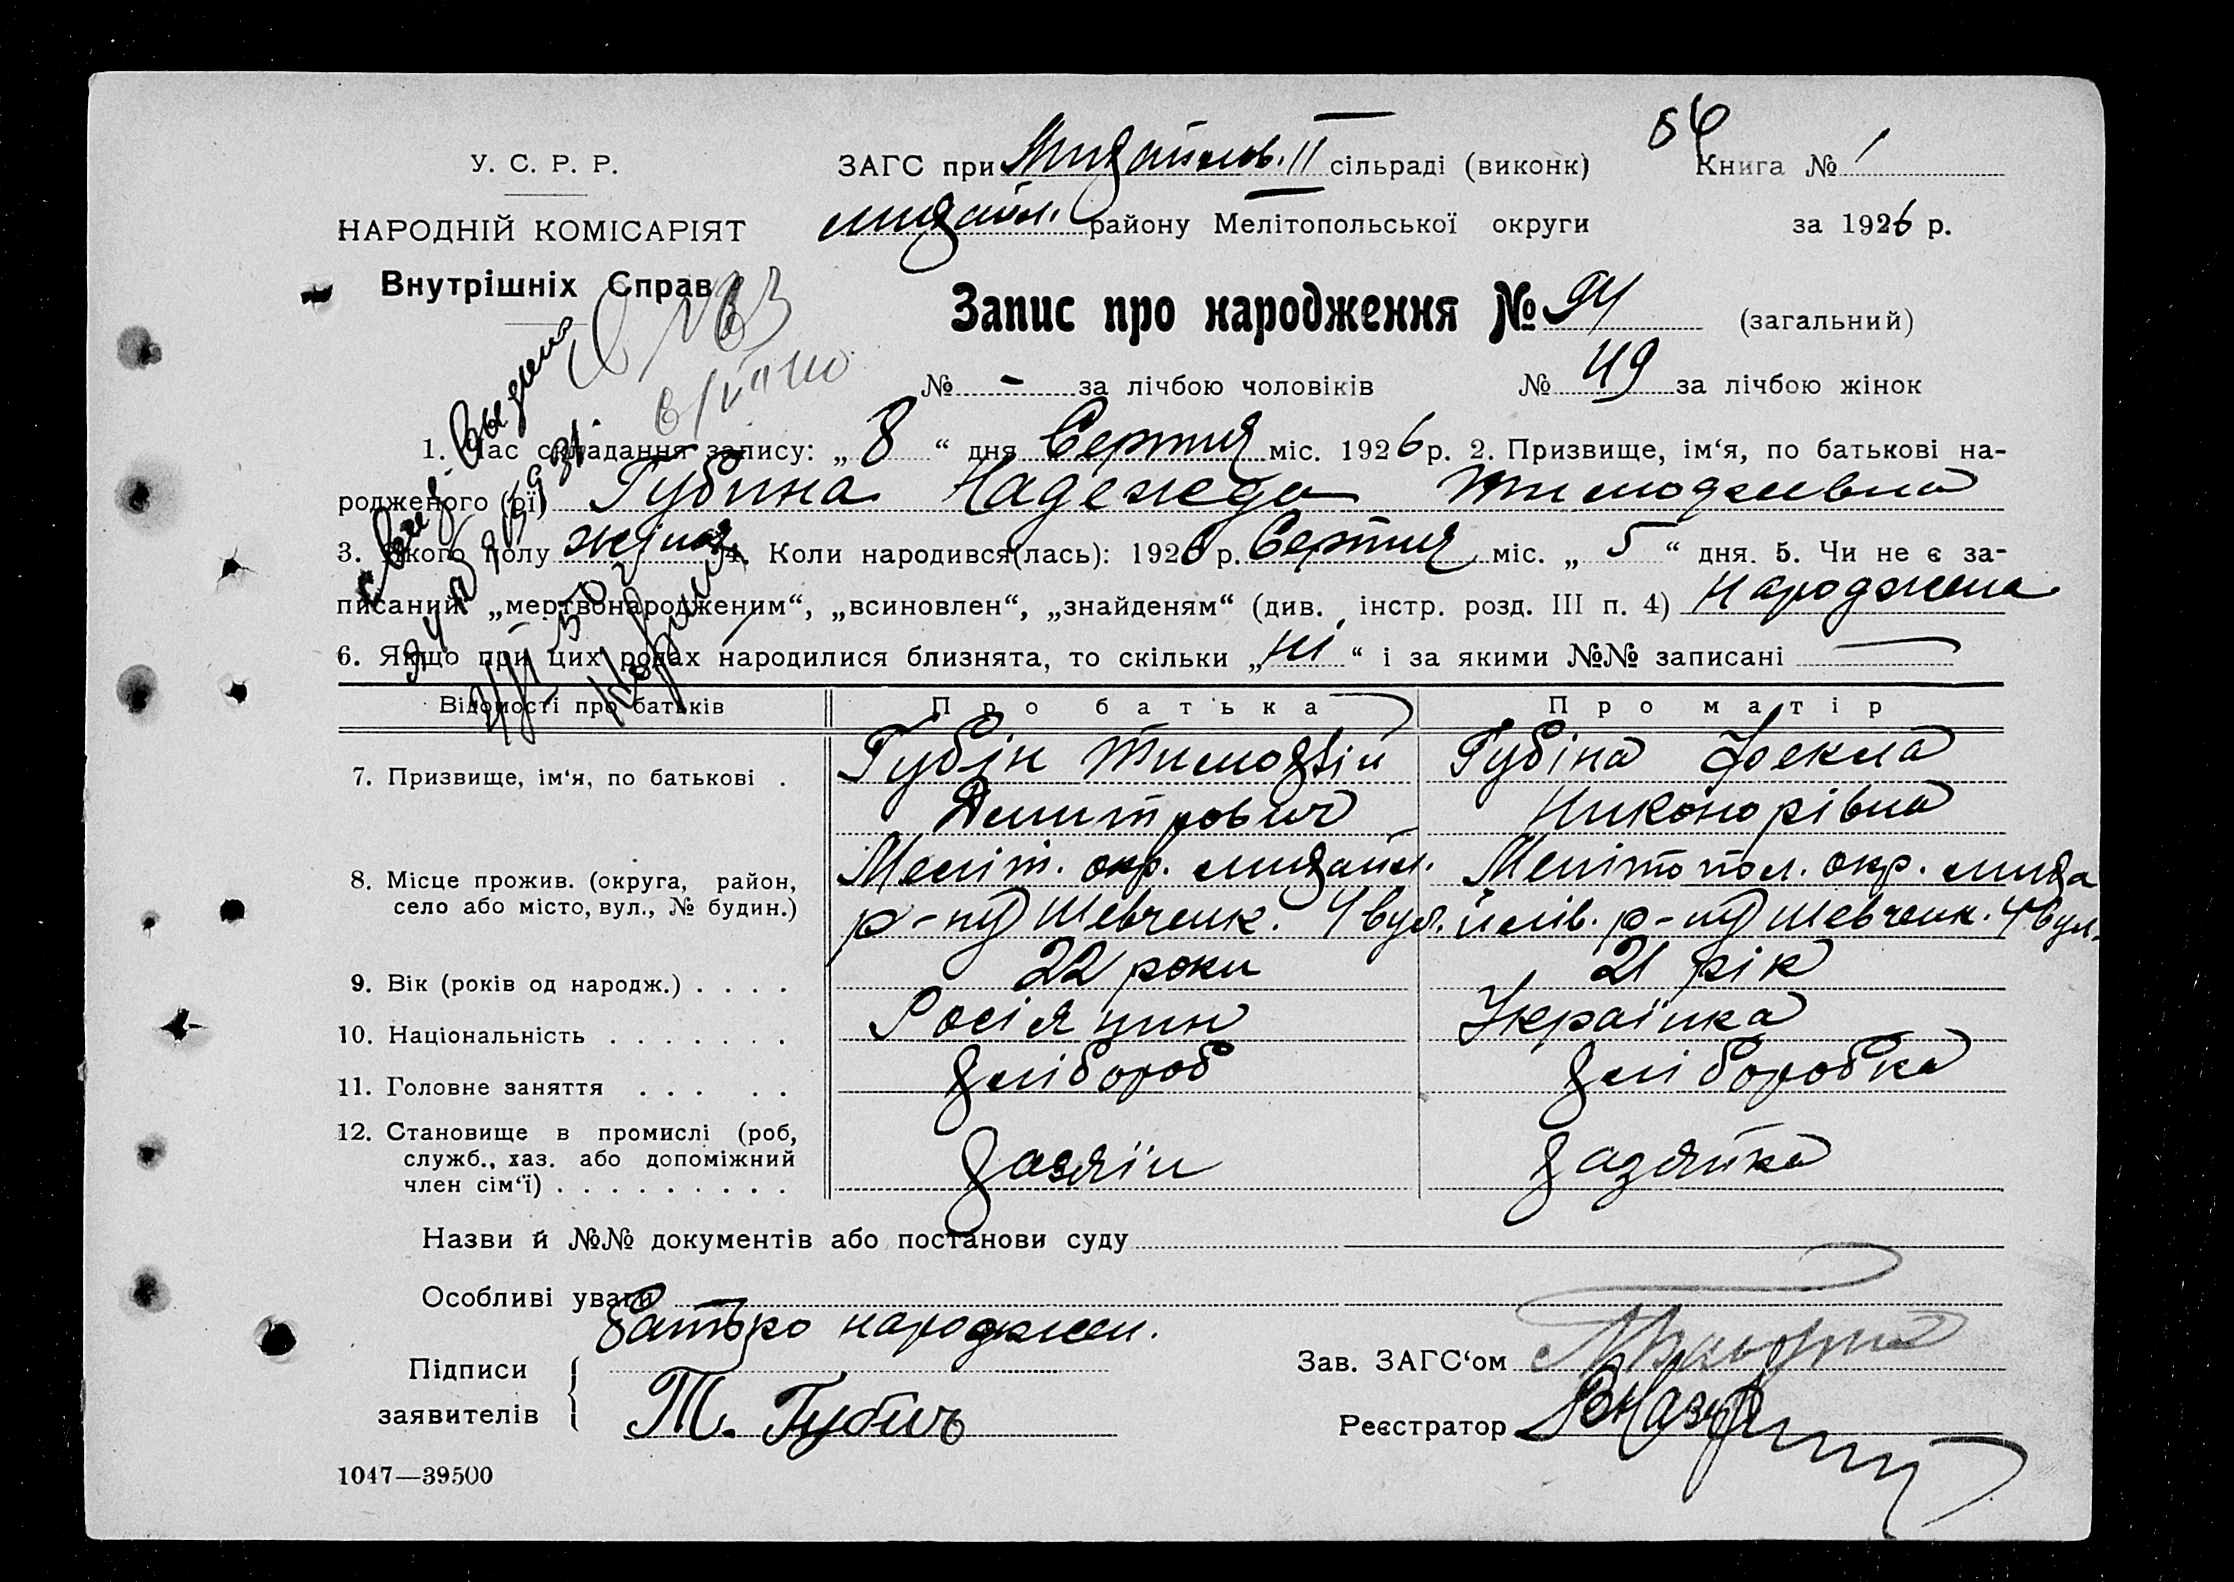 У. С. Р. Р.
НАРОДНІЙ КОМІСАРІЯТ
Внутрішніх Справ
ЗАГС при Михайлов. II сільраді (виконк)
Книга № 1
михайл. району Мелітопольської округи
за 1926 р.
Запис про народження № 94 (загальний)
№ - за лічбою чоловіків № 49 за лічбою жінок
1. Час складання запису: „ 8 “ дня Серпня міс. 1926 р. 2. Призвище, ім‘я, по батькові на-
родженого (ої) Губина Надежда Тимофеевна
3. Якого полу жіноч 4. Коли народився(лась): 1926 р. Серпня міс. „ 5 “ дня. 5. Чи не є за-
писаний „мертвонародженим“, „всиновлен“, „знайденям“ (див. інстр. розд. III п. 4) Народжена
6. Якщо при цих родах народилися близнята, то скільки „ ні “ і за якими №№ записані
Відомості про батьків Про батька Про матір
7. Призвище, ім‘я, по батькові . Губін Тимофій Губіна Фекла
Дмитрович Никонорівна
8. Місце прожив. (округа, район, Меліт. окр. михайл. Мелітопол. окр. миха
село або місто, вул., № будин.) р-ну Шевченк. 4 вул. йлів. р-ну Шевченк. 4 вул.
9. Вік (років од народж.) . . . . 22 роки 21 рік
10. Національність . . . . . . . Росіянин Українка
11. Головне заняття . . . . . хлібороб хліборобка
12. Становище в промислі (роб,
служб., хаз. або допоміжний хазяїн хазяйка
член сім‘ї) . . . . . . . . .
Назви й №№ документів або постанови суду
Особливі уваги
батько народжен.
Підписи
заявителів
Т. Губинъ
Зав. ЗАГС‘ом
Реєстратор
1047—39500